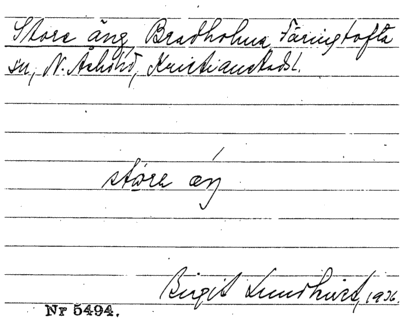 Store äng, Bradholma, Färingtofta
sn, N. Åsbohd, Kristianstads l.
støra æŋ
Birgit Lundhurst, 1936.
Nr 5494.